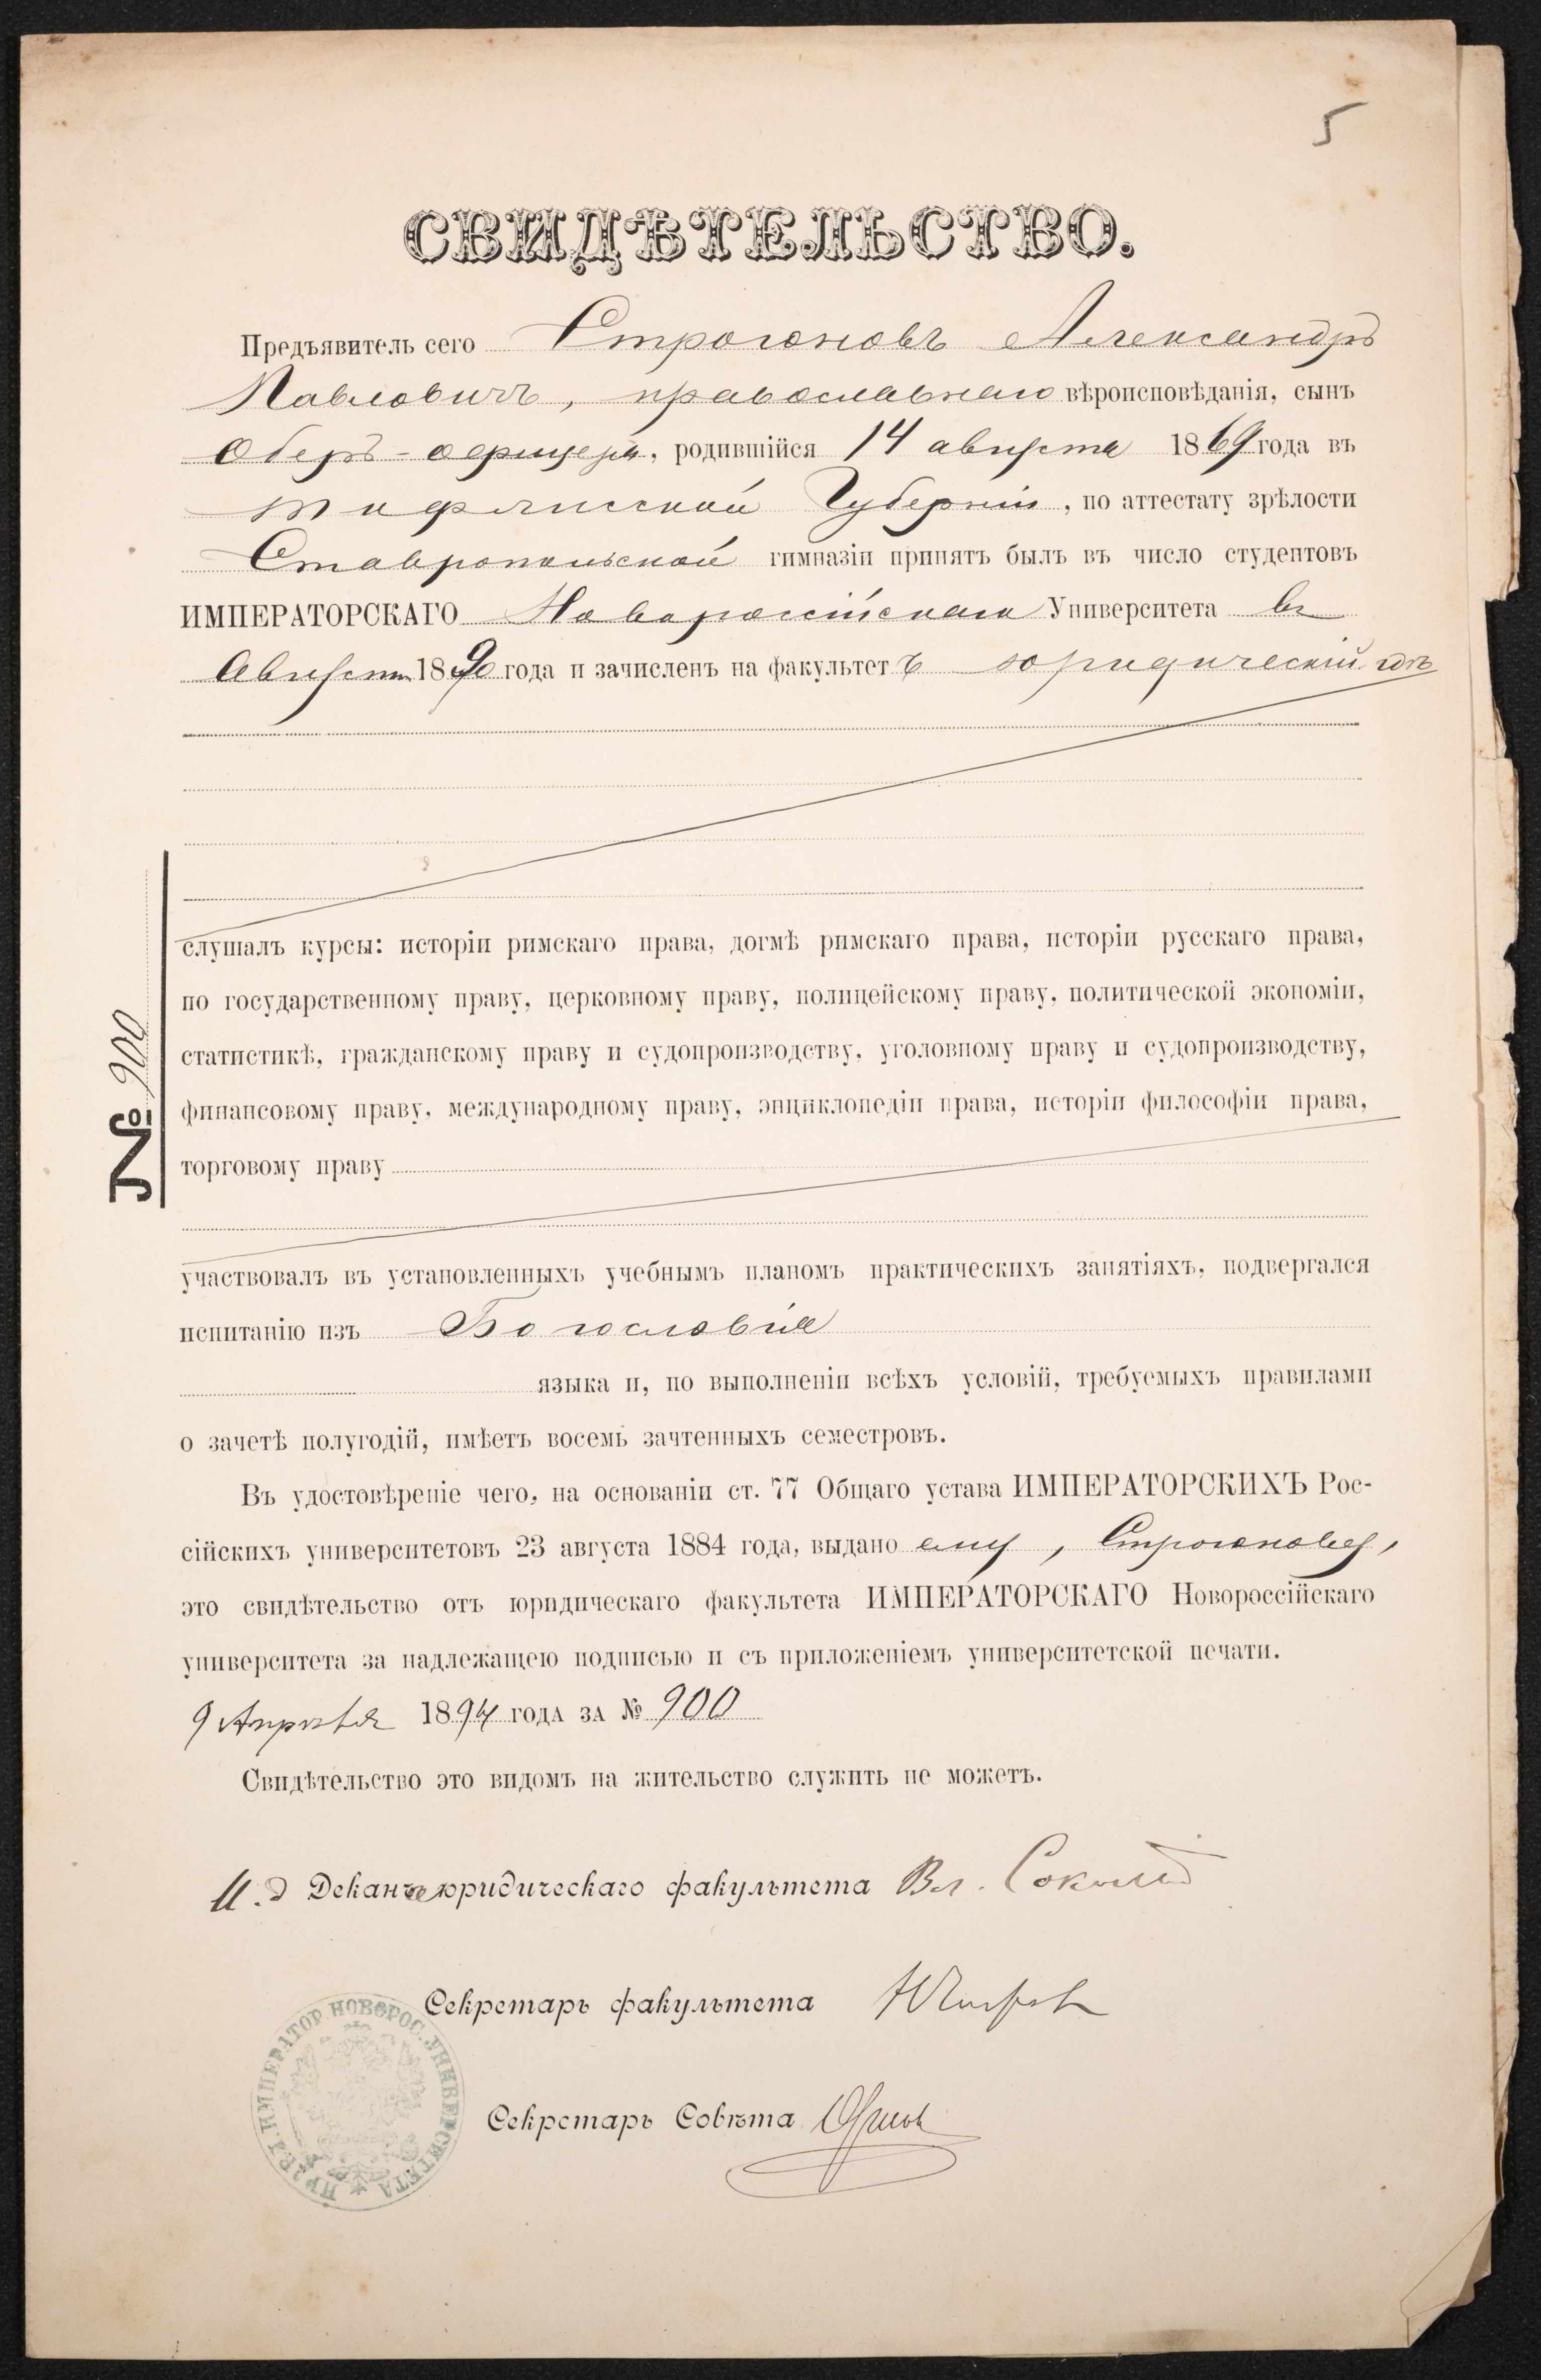 5
СВИДѢТЕЛЬСТВО.
Предъявитель сего Строгоновъ Александръ
Павловичъ, православнаго вѣроисповѣданія, сынъ
Оберъ-офицера, родившійся 14 августа 1869 года въ
Тифлисской Губерніи, по аттестату зрѣлости
Ставропольской гимназіи принятъ былъ въ число студентовъ
ИМПЕРАТОРСКАГО Новороссійскаго Университета въ
Августѣ 1890 года и зачисленъ на факультетъ юридическій, гдѣ
слушалъ курсы: исторіи римскаго права, догмѣ римскаго права, исторіи русскаго права,
по государственному праву, церковному праву, полицейскому праву, политической экономіи,
статистикѣ, гражданскому праву и судопроизводству, уголовному праву и судопроизводству,
финансовому праву, международному праву, энциклопедіи права, исторіи философіи права,
торговому праву
№ 900
участвовалъ въ установленныхъ учебнымъ планомъ практическихъ занятіяхъ, подвергался
испитанію изъ Богословія
языка и, по выполненіи всѣхъ условій, требуемыхъ правилами
о зачетѣ полугодій, имѣетъ восемь зачтенныхъ семестровъ.
Въ удостовѣреніе чего, на основаніи ст. 77 Общаго устава ИМПЕРАТОРСКИХЪ Рос-
сійскихъ университетовъ 23 августа 1884 года, выдано ему, Строгонову,
это свидѣтельство отъ юридическаго факультета ИМПЕРАТОРСКАГО Новороссійскаго
университета за надлежащею подписью и съ приложеніемъ университетской печати.
9 Апрѣля 1894 года за № 900
Свидѣтельство это видомъ на жительство служить не можетъ.
И.д Декана юридическаго факультета Вл.
Секретарь факультета
Секретарь Совѣта
ИМПЕРАТОР. НОВОРОС. УНИВЕРСИТЕТА